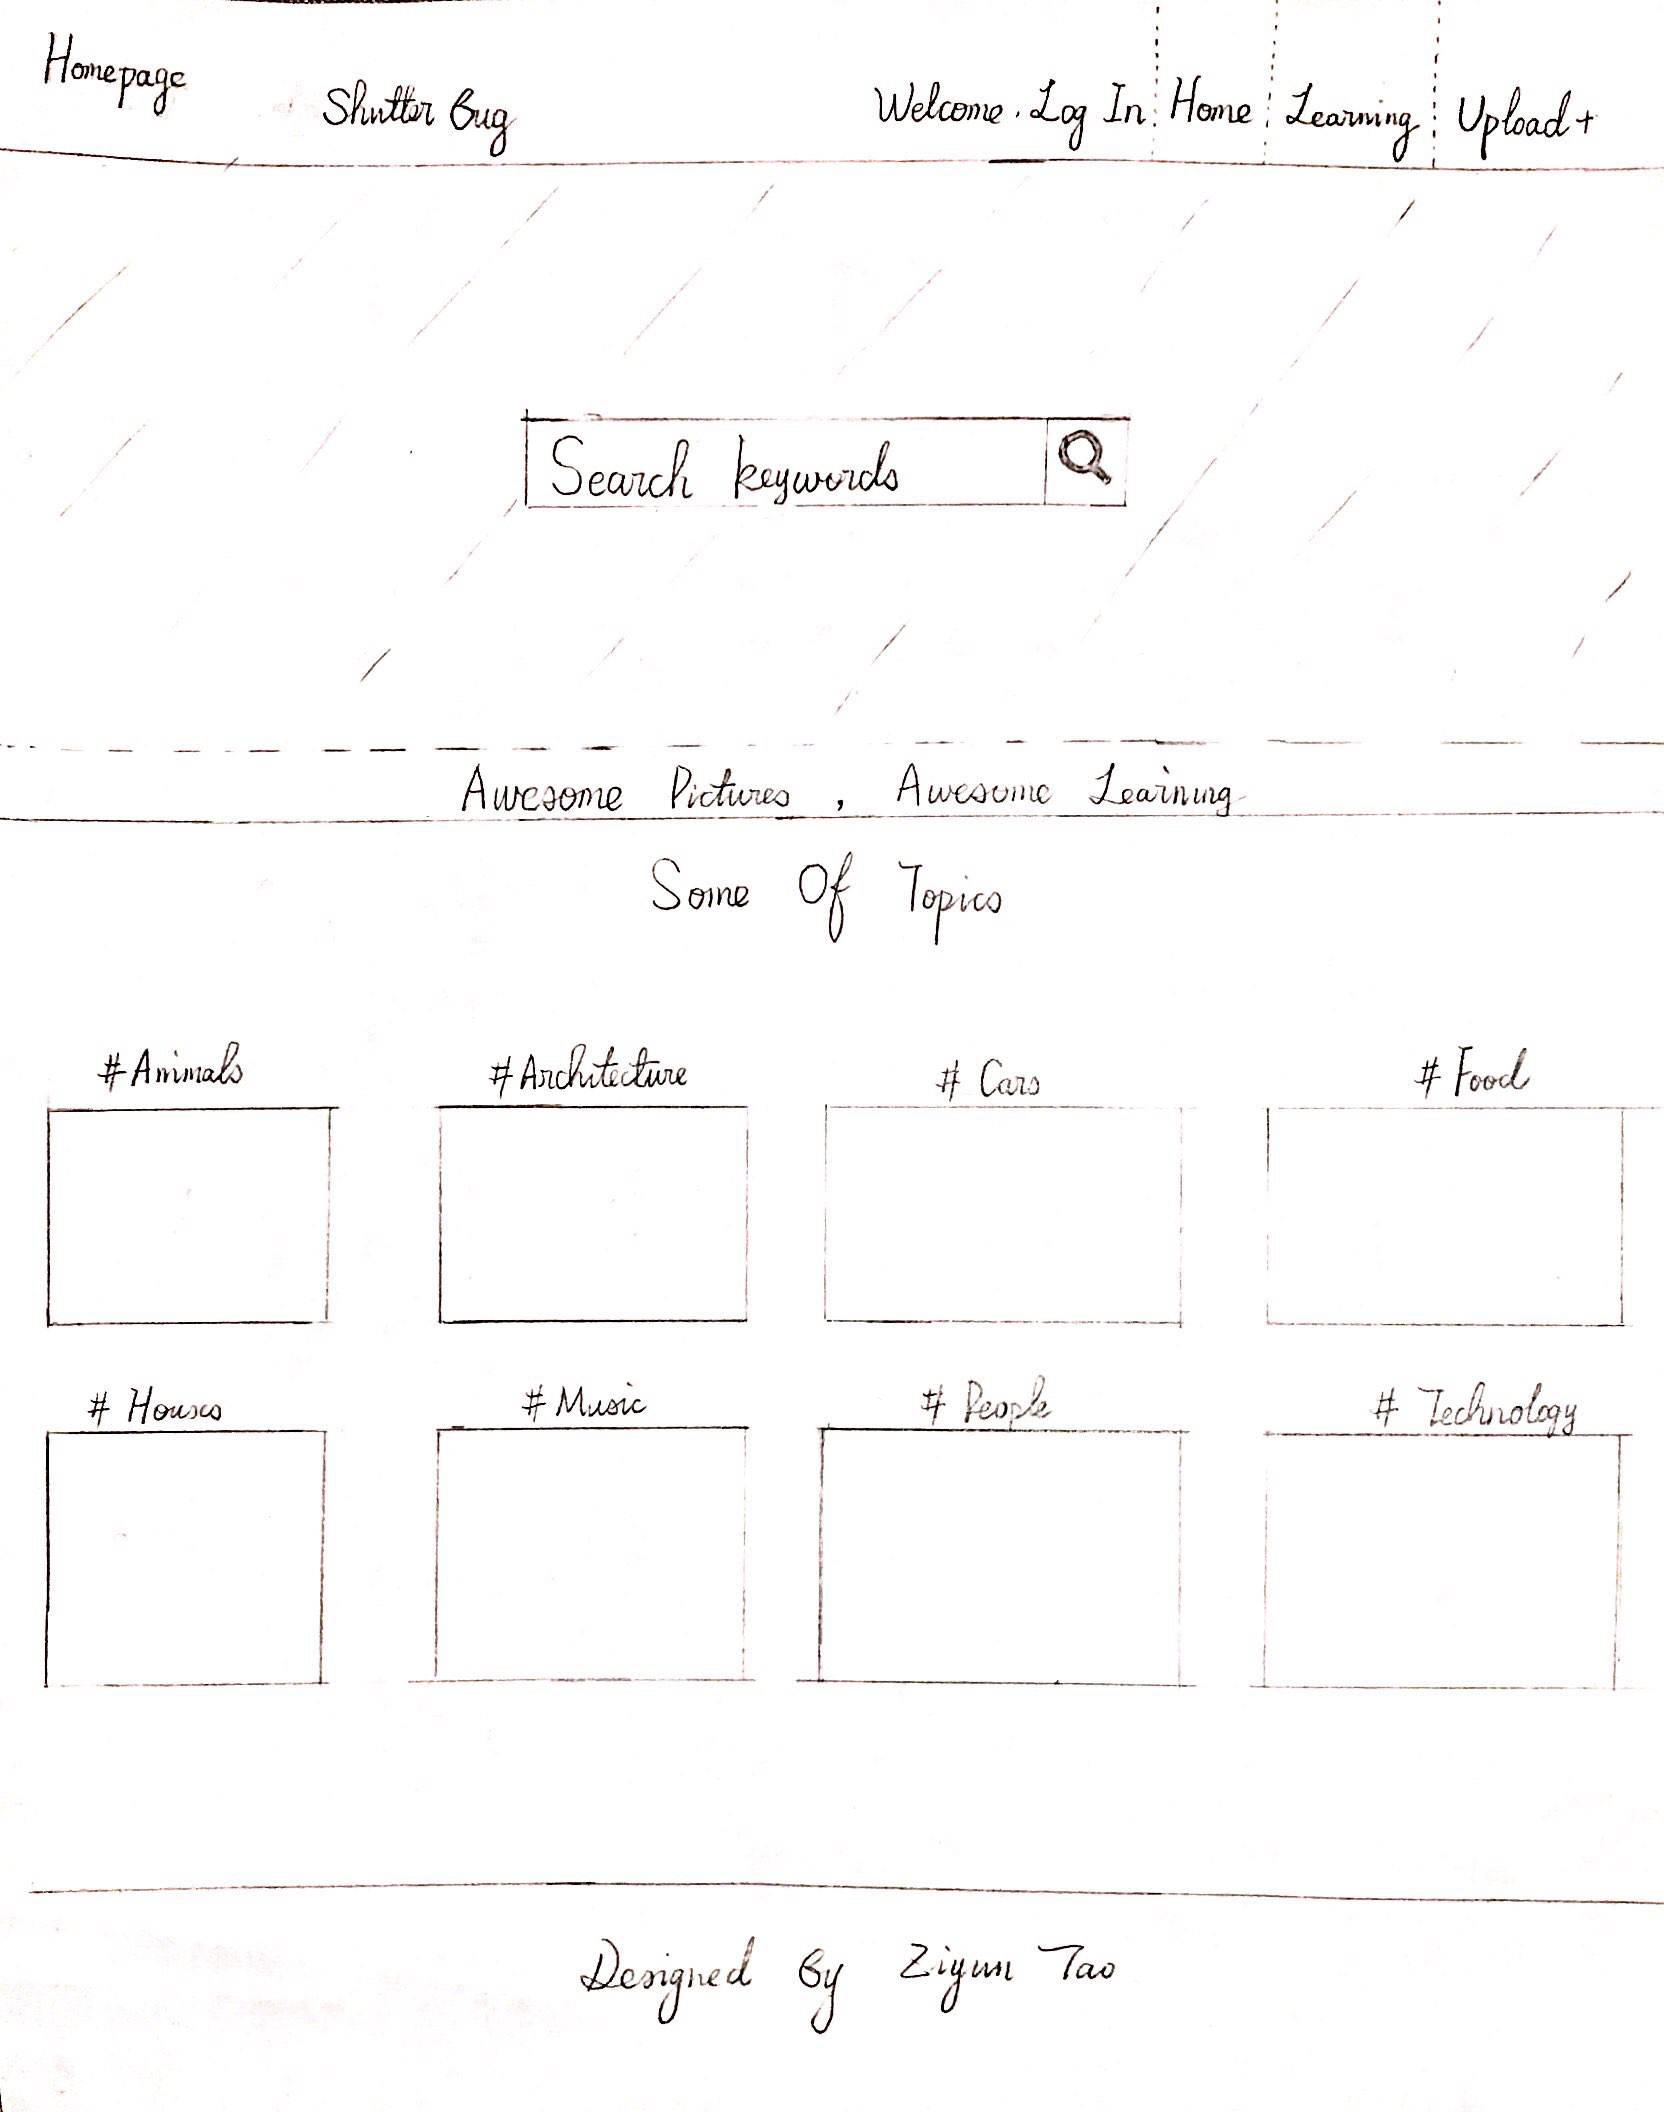 Homepage
Shutter Bug
Welcome. Log In
Home
Learning
Upload +
Search keywords
Awesome Pictures , Awesome Learning
Some Of Topics
# Animals
# Architecture
# Cars
# Food
# Houses
# Music
# People
# Technology
Designed By Ziyun Tao